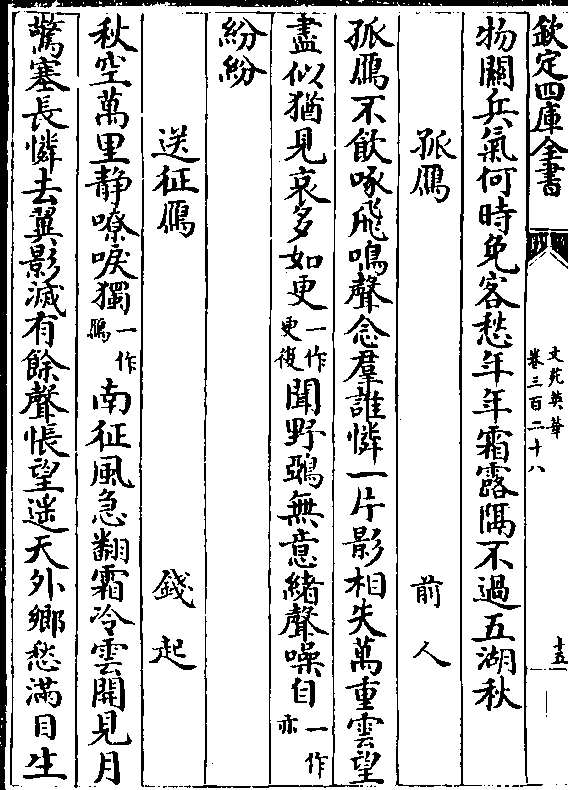 欽定四庫全書
文苑英華
卷三百二十八
十五
物關兵氣何時免客愁年年霜露隔不過五湖秋
孤鴈 前人
孤鴈不飲啄飛鳴聲念羣誰憐一片影相失萬重雲望
盡似猶見哀多如更一作更復聞野鵶無意緒聲噪自一作亦
紛紛
送征鴈 錢起
秋空萬里静嘹唳獨一作鴈南征風急翻霜冷雲開見月
驚塞長憐去翼影滅有餘聲悵望遥天外鄉愁滿目生